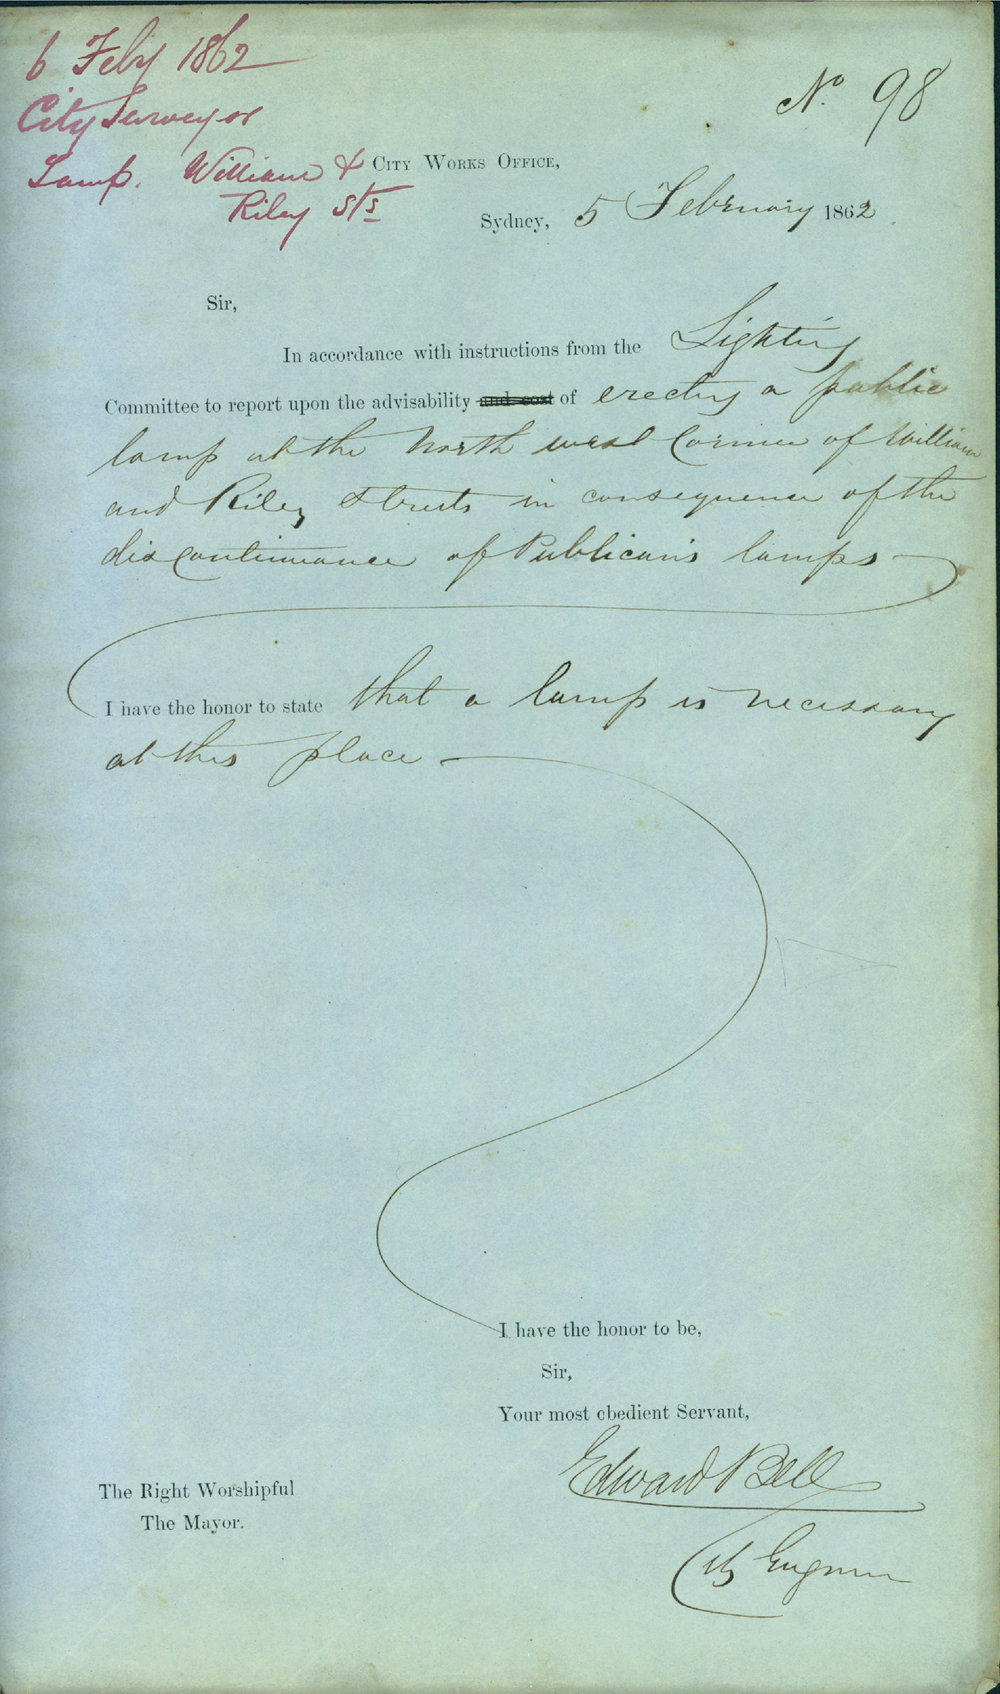 6 Feby 1862
City Surveyor
Lamp. William &
Riley Sts
No. 98
City Works Office,
Sydney, 5 February 1862
Sir,
In accordance with instructions from the Lighting
Committee to report upon the advisability and cost of erecting a public
lamp at the North west Corner of William
and Riley Streets in consequence of the
discontinuance of Publican's lamps
I have the honor to state that a lamp is necessary
at this place
I have the honor to be,
Sir,
Your most obedient Servant,
Edward Bell
City Engineer
The Right Worshipful
The Mayor.